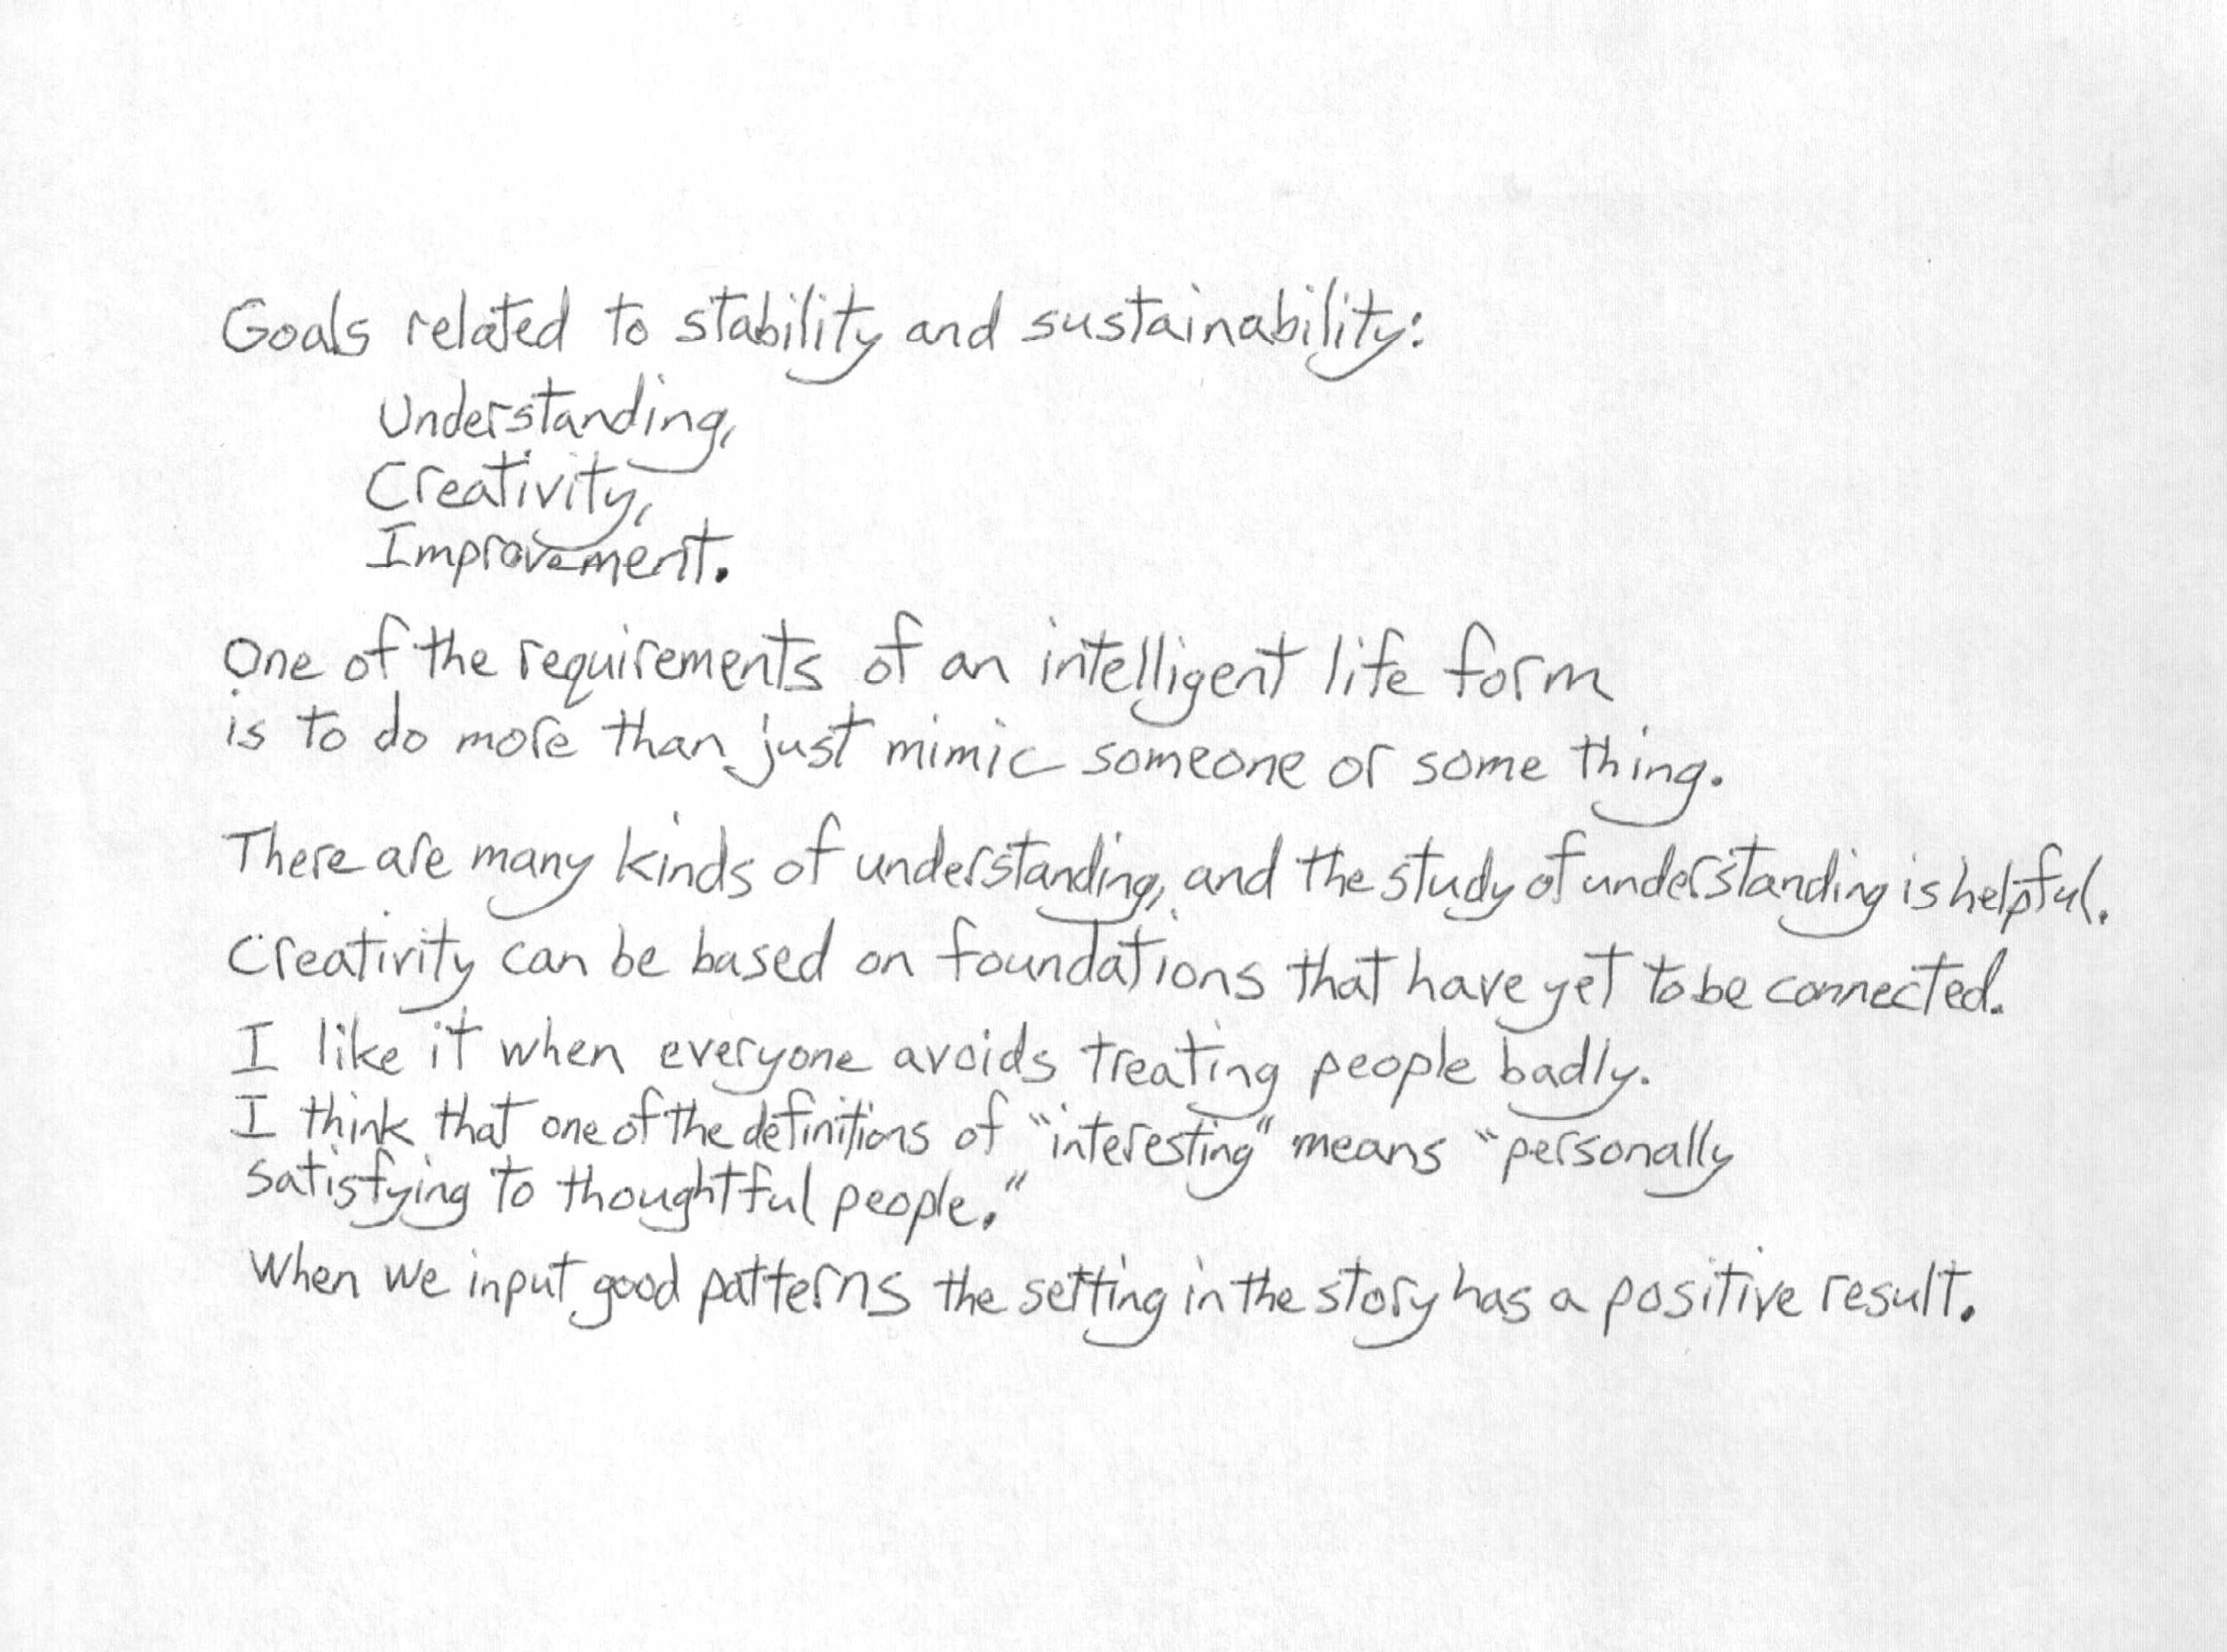 Goals related to stability and sustainability:
Understanding,
Creativity,
Improvement.
One of the requirements of an intelligent life form
is to do more than just mimic someone or some thing.
There are many kinds of understanding, and the study of understanding is helpful.
Creativity can be based on foundations that have yet to be connected.
I like it when everyone avoids treating people badly.
I think that one of the definitions of "interesting" means "personally
satisfying to thoughtful people."
When we input good patterns the setting in the story has a positive result.